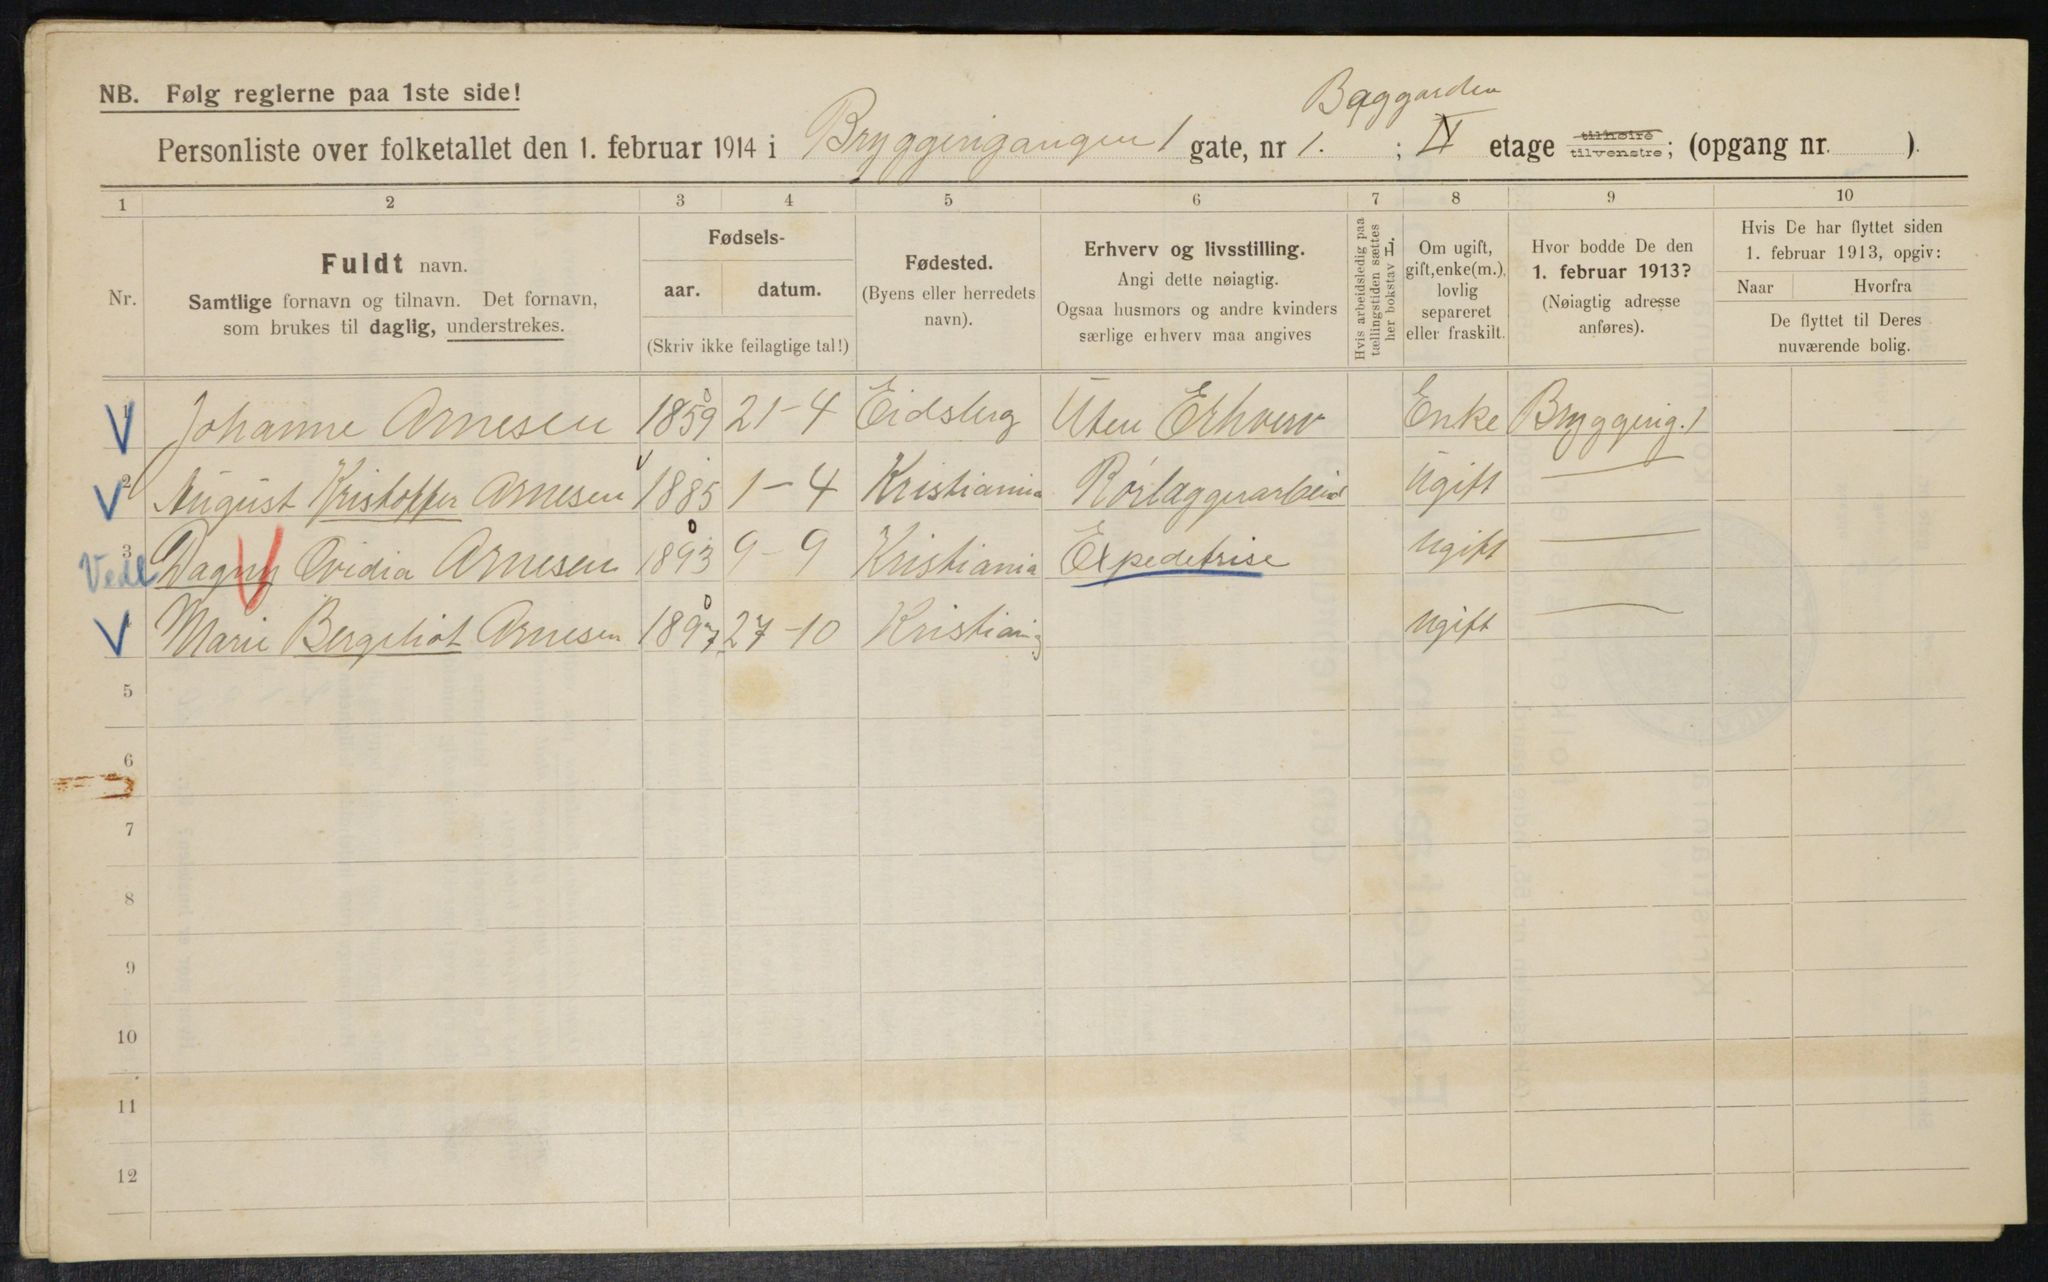 Baggarden
NB. Følg reglerne paa 1ste side!
Personliste over folketallet den 1. februar 1914 i Bryggerigangen 1 gate, nr 1. ; IV etage tilhøire tilvenstre; (opgang nr. ).
1 2 3 4 5 6 7 8 9 10
Nr.
Fuldt navn.
Samtlige fornavn og tilnavn. Det fornavn,
som brukes til daglig, understrekes.
Fødsels-
aar. datum.
(Skriv ikke feilagtige tal!)
Fødested.
(Byens eller herredets
navn).
Erhverv og livsstilling.
Angi dette nøiagtig.
Ogsaa husmors og andre kvinders
særlige erhverv maa angives
Hvis arbeidsledig paa
tællingstiden sættes
her bokstav L.
Om ugift,
gift, enke(m.),
lovlig
separeret
eller fraskilt.
Hvor bodde De den
1. februar 1913?
(Nøiagtig adresse
anføres).
Hvis De har flyttet siden
1. februar 1913, opgiv:
Naar Hvorfra
De flyttet til Deres
nuværende bolig.
1 Johanne Arnesen 1859 21-4 Eidsberg Uten Erhverv Enke Bryggerig. 1
2 August Kristoffer Arnesen 1885 1-4 Kristiania Rörlæggerarbeid Ugift —
Vedl 3 Dagny Ovidia Arnesen 1893 9-9 Kristiania Expedetrise Ugift —
4 Marie Bergeliot Arnesen 1897 27-10 Kristiania Ugift —
5
6
7
8
9
10
11
12